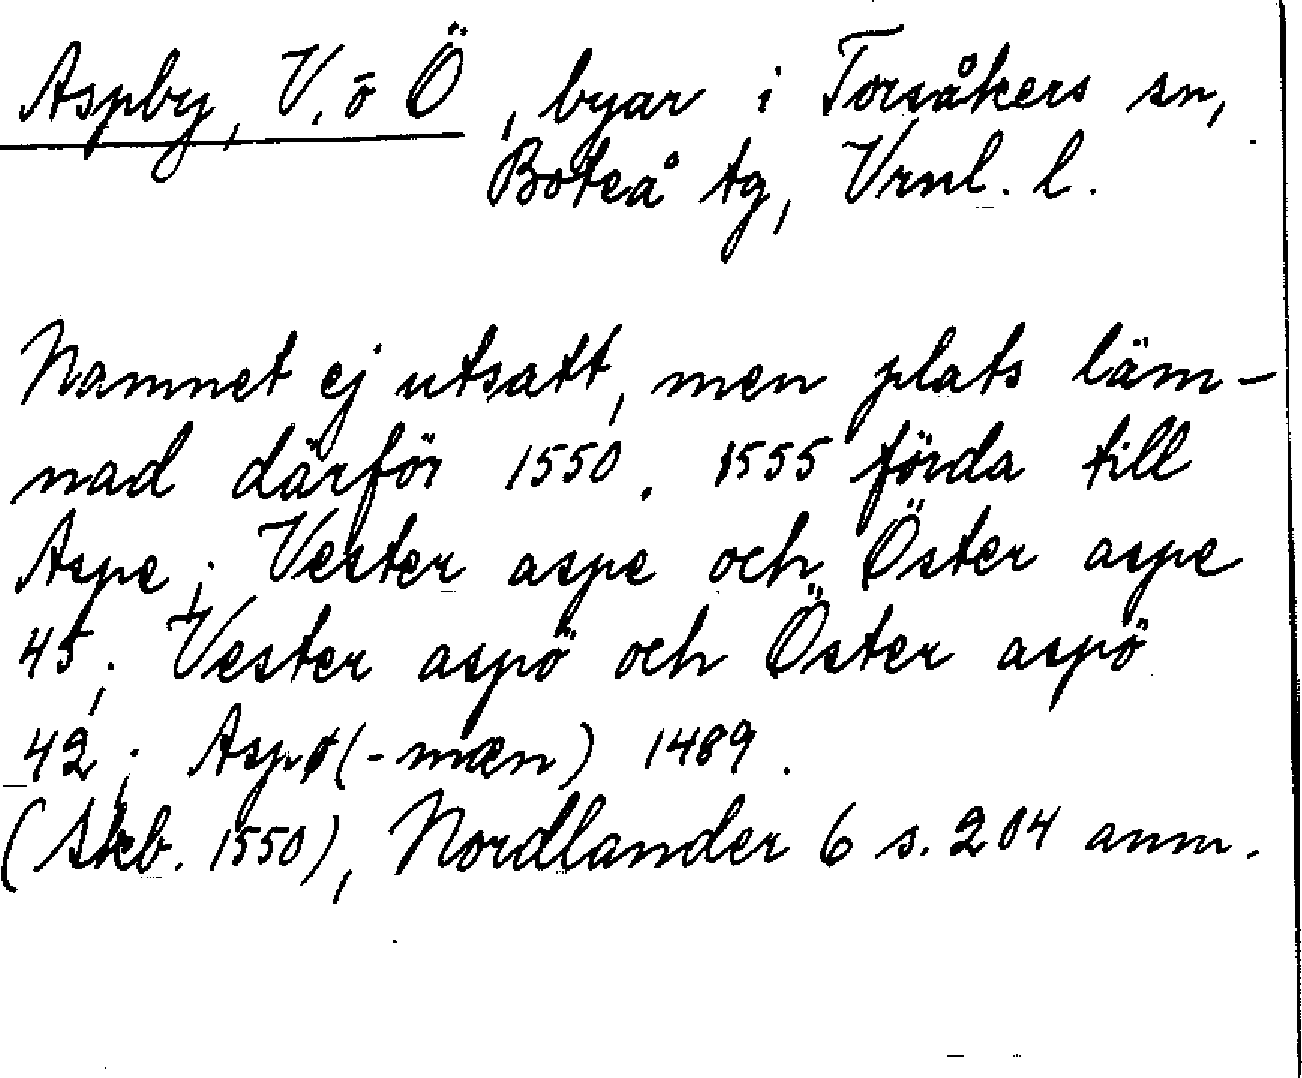 Aspby, V. o Ö, byar i Torsåkers sn,
Boteå tg, Vrnl. l.
Namnet ej utsatt, men plats läm-
nad därför 1550. 1555 förda till
Aspe; Vester aspe och Öster aspe
45; Vester aspö och Öster aspö
42; Aspø(-mæn) 1489.
(Skb. 1550), Nordlander 6 s. 204 anm.